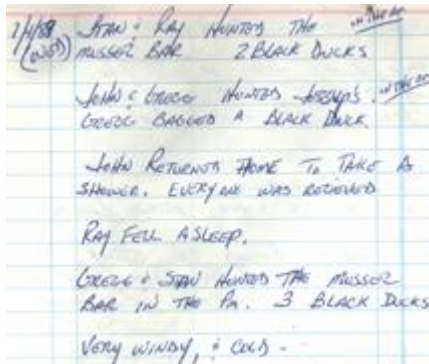 1/4/89 STAN & RAY HUNTED THE IN THE AM
(WED) MUSSEL BAR 2 BLACK DUCKS
JOHN & GREGG HUNTED JESSUP'S. IN THE AM
GREGG BAGGED A BLACK DUCK.
JOHN RETURNED HOME TO TAKE A
SHOWER. EVERYONE WAS RELIEVED
RAY FELL ASLEEP.
GREGG & STAN HUNTED THE MUSSEL
BAR IN THE PM. 3 BLACK DUCKS
VERY WINDY, & COLD -